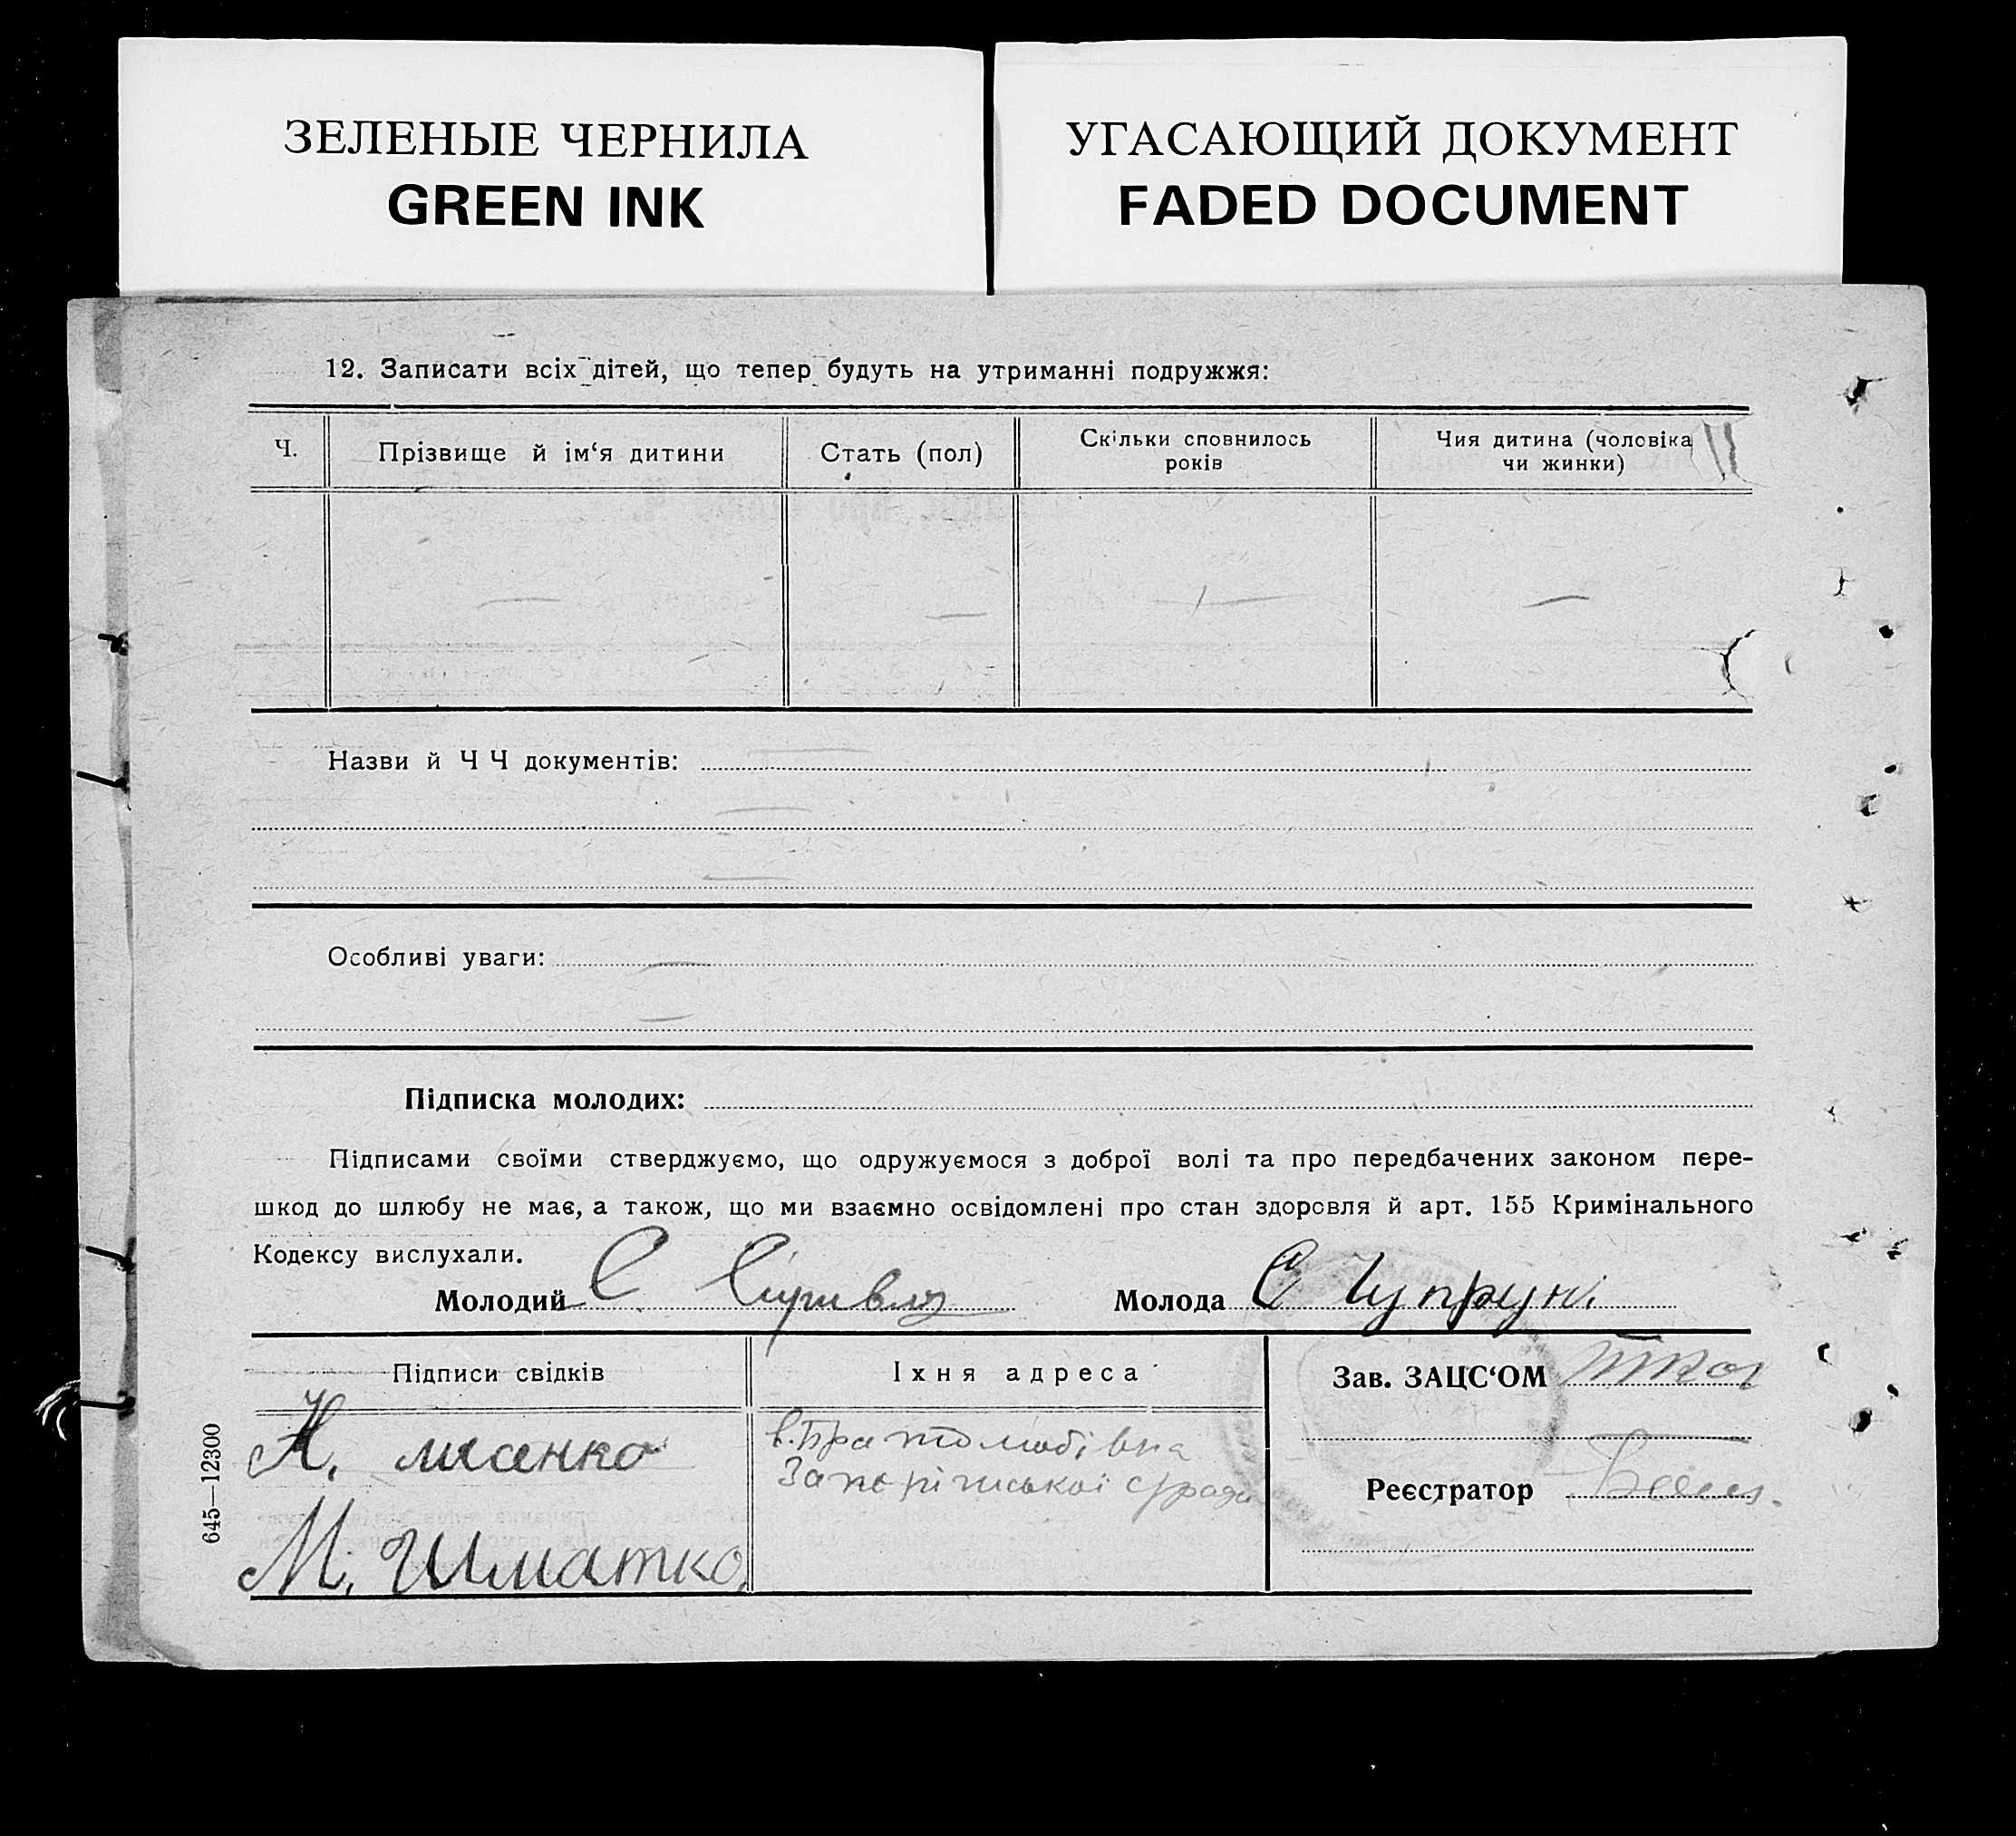 ЗЕЛЕНЫЕ ЧЕРНИЛА
GREEN INK
УГАСАЮЩИЙ ДОКУМЕНТ
FADED DOCUMENT
12. Записати всіх дітей, що тепер будуть на утриманні подружжя:
Ч.
Прізвище й ім‘я дитини
Стать (пол)
Скільки сповнилось
років
Чия дитина (чоловіка
чи жинки)
Назви й Ч Ч документів:
Особливі уваги:
Підписка молодих:
Підписами своїми стверджуємо, що одружуємося з доброї волі та про передбачених законом пере-
шкод до шлюбу не має, а також, що ми взаємно освідомлені про стан здоровля й арт. 155 Кримінального
Кодексу вислухали.
Молодий С
Молода Є Чупрун.
Підписи свідків
Їхня адреса
Зав. ЗАЦС‘ОМ
Н. лисенко
в. Братолюбівка
Реєстратор
М. Шматко
645—12300